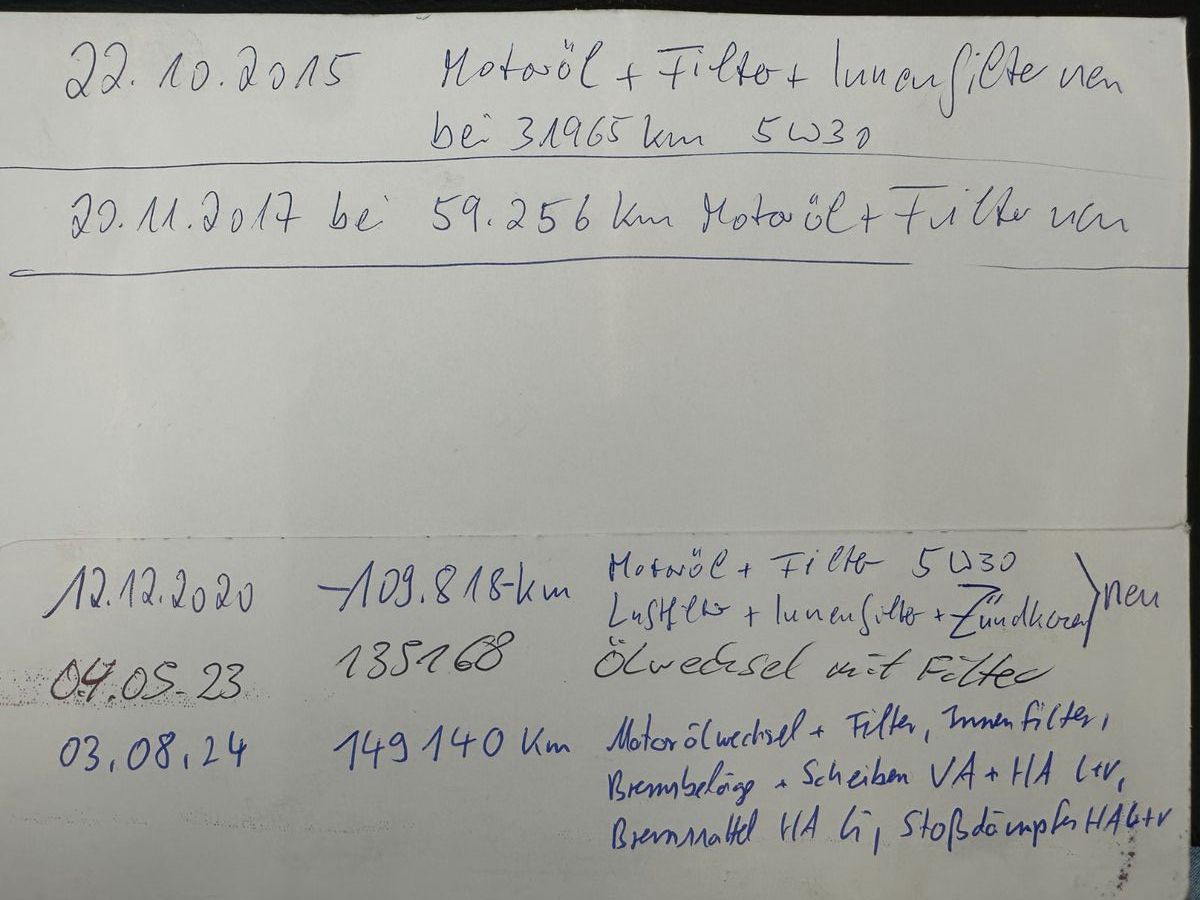 22.10.2015 Motoröl + Filter + Innenfilter neu
bei 31965 km 5W30
20.11.2017 bei 59.256 km Motoröl + Filter neu
12.12.2020 -109.818-km Motoröl + Filter 5W30
Luftfilter + Innenfilter + Zündkerzen } neu
04.05-23 135168 Ölwechsel mit Filter
03.08.24 149140 Km Motorölwechsel + Filter, Innenfilter,
Bremsbeläge + Scheiben VA + HA l+r,
Bremssattel HA li, Stoßdämpfer HA l+r